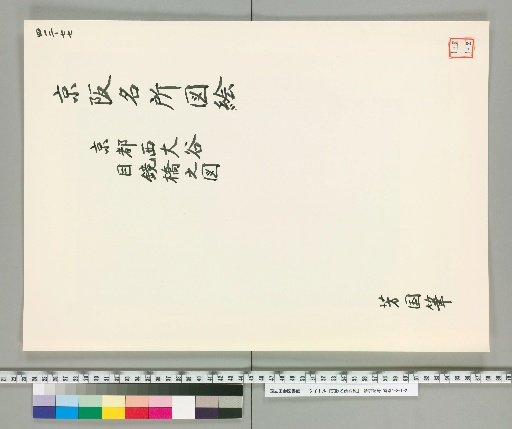 京阪名所図絵
京都西大谷
目鏡橋之図
芳国筆